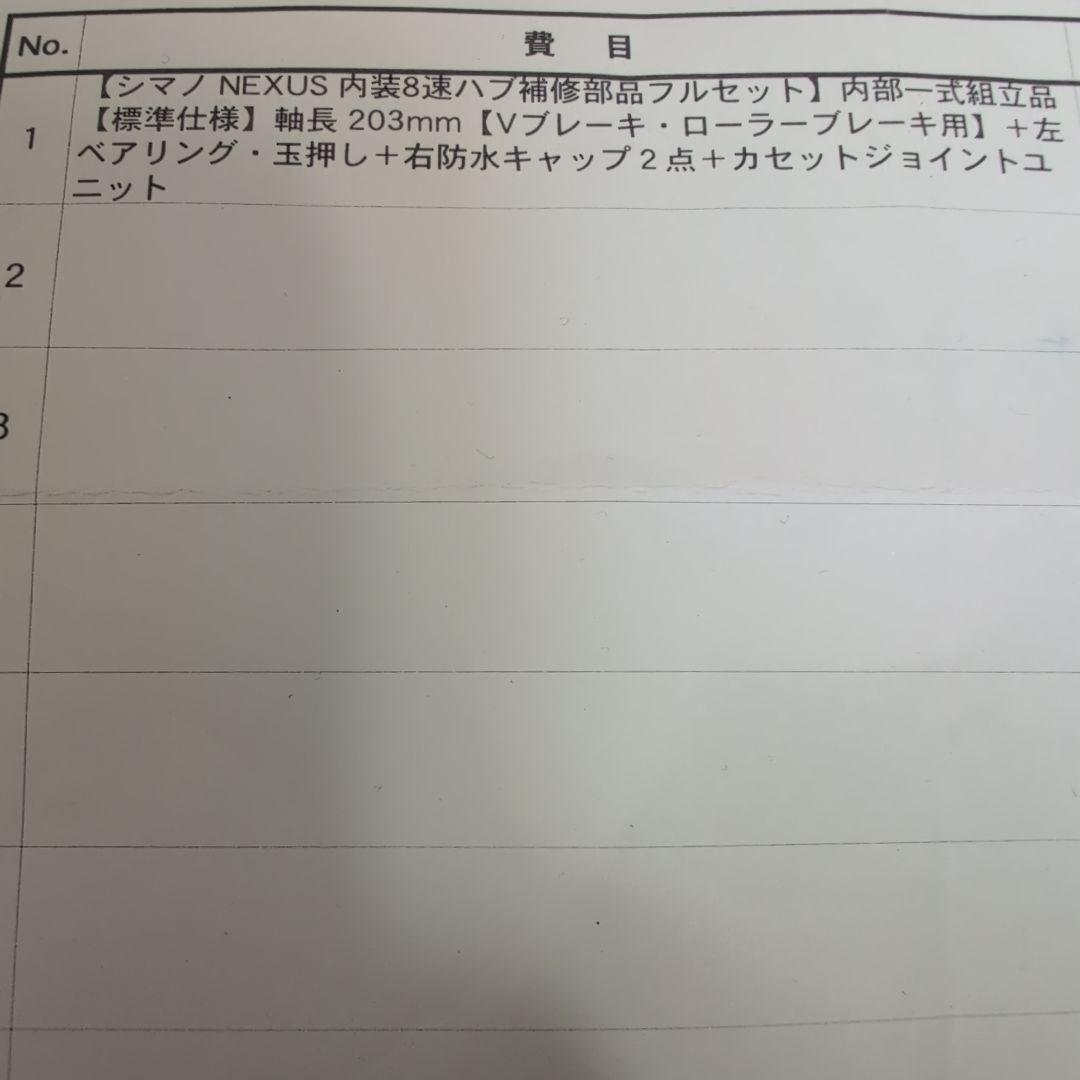 No. 費 目
1 【シマノ NEXUS 内装8速ハブ補修部品フルセット】内部一式組立品
【標準仕様】軸長 203mm【Vブレーキ・ローラーブレーキ用】＋左
ベアリング・玉押し＋右防水キャップ２点＋カセットジョイントユ
ニット
2
3